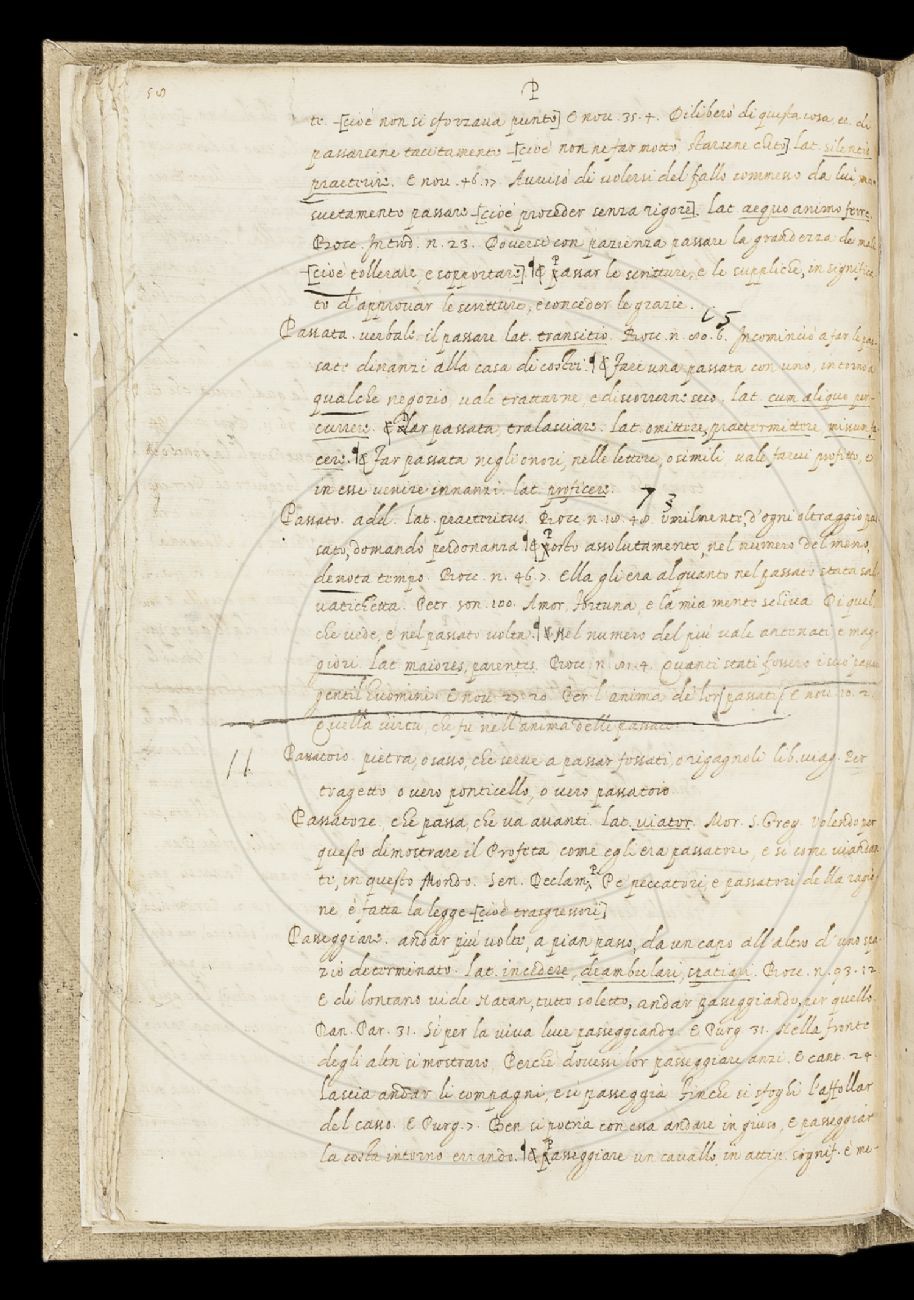 P
te. [cioè non si sforzaua punto] E nou. 35. 4. Diliberò di questa cosa, et. di
passarsene tacitamente [cioè non ne far motto, starsene cheto] lat. silentio
praeterire. E nou. 46. 17. Auuisò di uolersi del fallo commesso da lui man-
suetamente passare [cioè proceder senza rigore]. lat. aequo animo ferre.
Bocc. Introd. n. 23. Douersi con pazienza passare la grandezza de mali
[cioè tollerare, e sopportare]. ¶ Passar le scritture, e le suppliche, in significa-
to d'approuar le scritture, e conceder le grazie.
Passata. verbale. il passare lat. transitio. Bocc. n. 65. 6. Incominciò a far le pas-
sate dinanzi alla casa di costei. ¶ Fare una passata con uno, intorno a
qualche negozio, uale trattarne, e discorrerne seco, lat. cum aliquo per-
currere. Far passata, tralasciare. lat. omittere, praetermittere, missum fa-
cere. ¶ Far passata negli onori, nelle lettere, o simili vale farui profitto, e
in esse uenire innanzi. lat. proficere.
Passato. add. lat. praeteritus. Bocc. n. 73 umilmente, d'ogni oltraggio pas-
sato, domandò perdonanza ¶ Posto assolutamente, nel numero del meno,
denota tempo. Bocc. n. 46. 7. Ella gli era alquanto nel passato stata sal-
uatichetta. Petr. son. 100. Amor, Fortuna, e la mia mente schiua Di quel,
che uede, e nel passato uolta. ¶ Nel numero del più vale antenati e mag-
giori. lat. maiores, parentes. Bocc. n. 4. Quanti stati fossero i suoi passati
gentil huomini. E nou. 27. 20. Per l'anima de lor passati E nou. 10. 2.
Quella uirtù, che fu nell'anima delle passate
Passatoio. pietra, o sasso, che serue a passar fossati, o rigagnoli lib. uiag. Per
tragetto o uero ponticello, o uero passatoio
Passatore, che passa, che ua auanti. lat. uiator. Mor. S. Greg. Volendo per
questo dimostrare il Profeta, come egli era passatore, e sì come uiandan-
te, in questo Mondo. Sen. Declam. P. Pe peccatori, e passatori della ragio-
ne è fatta la legge [cioè trasgressori]
Passeggiare. andar più uolte, a pian passo, da un capo all'altro d'uno spa-
zio determinato. lat. incedere, deambulari, spatiari. Bocc. n. 93. 12
E di lontano uide Natan, tutto soletto, andar passeggiando, per quello.
Dan. Par. 31. Sì per la uiua luce passeggiando. E Purg. 31. Nella fronte
degli altri si mostraro, Perchè douessi lor passeggiare anzi. E cant. 24.
Lascia andar li compagni, e sì passeggia Finchè si sfoghi l'affollar
del casso. E Purg. 7. Ben si potria con essa andare in giuso, E passeggiar
la costa intorno errando. ¶ Passeggiare un cavallo, in attiu. signif. è me-